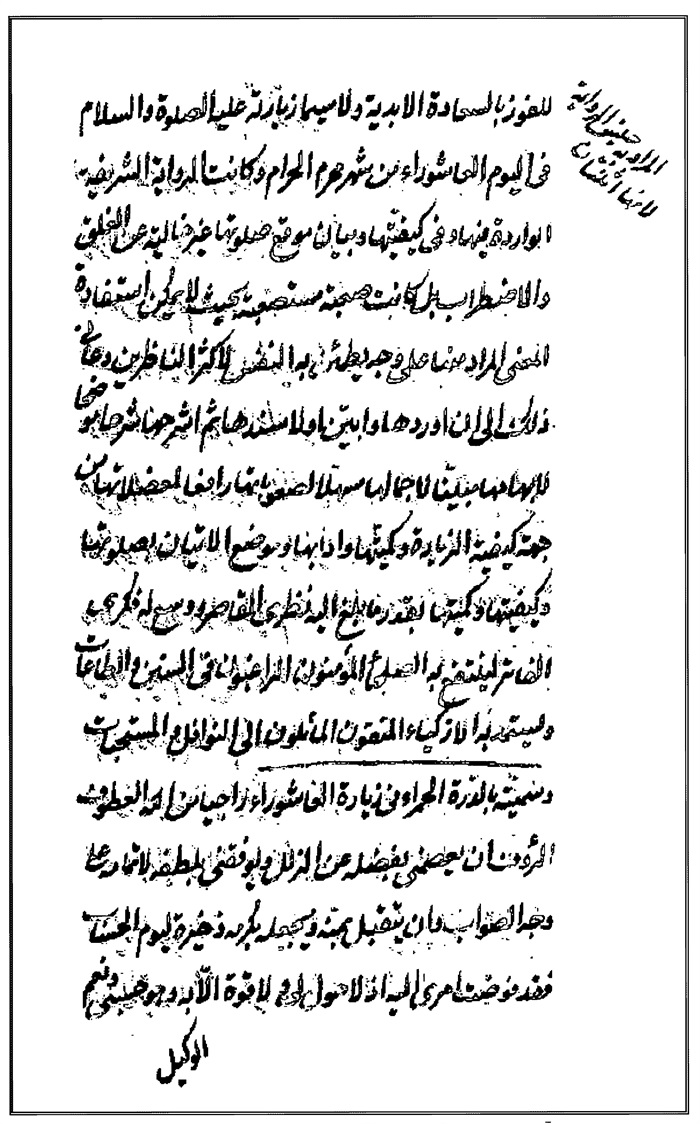 للفوز بالسعادة الابدية ولاسيما زيارته عليه الصلوة والسلام
فى اليوم العاشوراء من شهر محرم الحرام وكانت الرواية الشريفة
الواردة فيها وفى كيفيتها وبيان موقع صلوتها غير خالية عن الغلق
والاضطراب بل كانت صعبة مستصعبة بحيث لا يمكن استفادة
المعنى المراد منها على وجه يطمئن به النفس لاكثر الناظرين دعانى
ذلك الى ان اوردها وابين اولا سندها ثم اشرحها شرحا موضحا
لابهامها مبينا لاجمالها مسهلا لصعوباتها رافعا لمعضلاتها من
جهة كيفية الزيارة وكميتها وادابها وموضع الاتيان بصلوتها
وكيفيتها وكميتها بقدر ما بلغ اليه نظرى القاصر ووسع له فكرى
الفاتر لينتفع به الصلحاء المؤمنون الراغبون فى السنن والطاعات
وليستمد به الازكياء المتقون المائلون الى النوافل والمستحبات
وسميته بالدرة الحمراء فى زيارة العاشوراء راجيا من الله العطوف
الرؤف ان يعصمنى بفضله عن الزلل ويوفقنى بلطفه لاتمامه على
وجه الصواب وان يتقبل بمنه ويجعله بكرمه ذخيرة ليوم الحساب
فقد فوضت امرى اليه اذ لا حول لى ولا قوة الا به وهو حسبى ونعم
الوكيل
الرواية